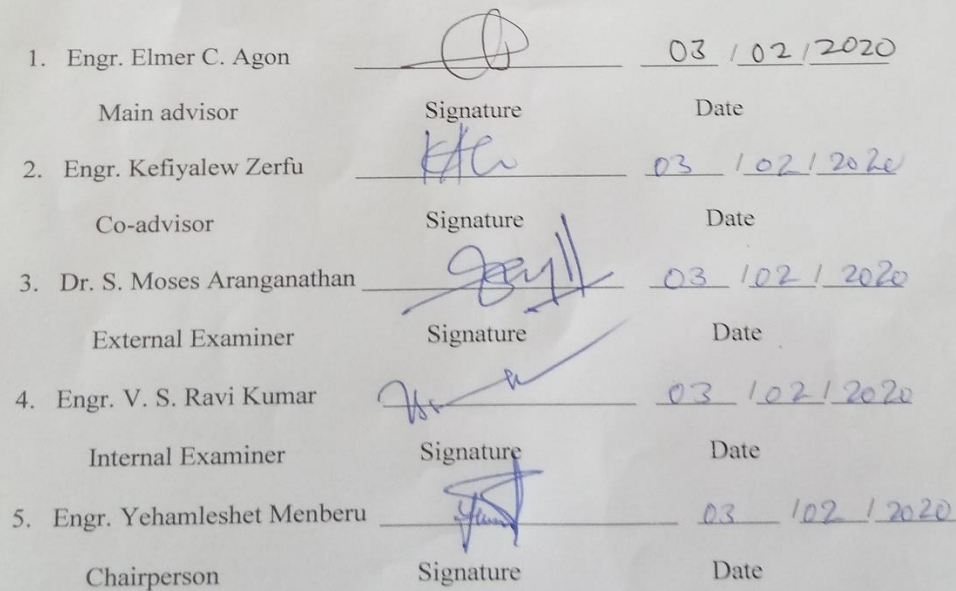 1. Engr. Elmer C. Agon 03 / 02 / 2020
Main advisor Signature Date
2. Engr. Kefiyalew Zerfu 03 / 02 / 2020
Co-advisor Signature Date
3. Dr. S. Moses Aranganathan 03 / 02 / 2020
External Examiner Signature Date
4. Engr. V. S. Ravi Kumar 03 / 02 / 2020
Internal Examiner Signature Date
5. Engr. Yehamleshet Menberu 03 / 02 / 2020
Chairperson Signature Date